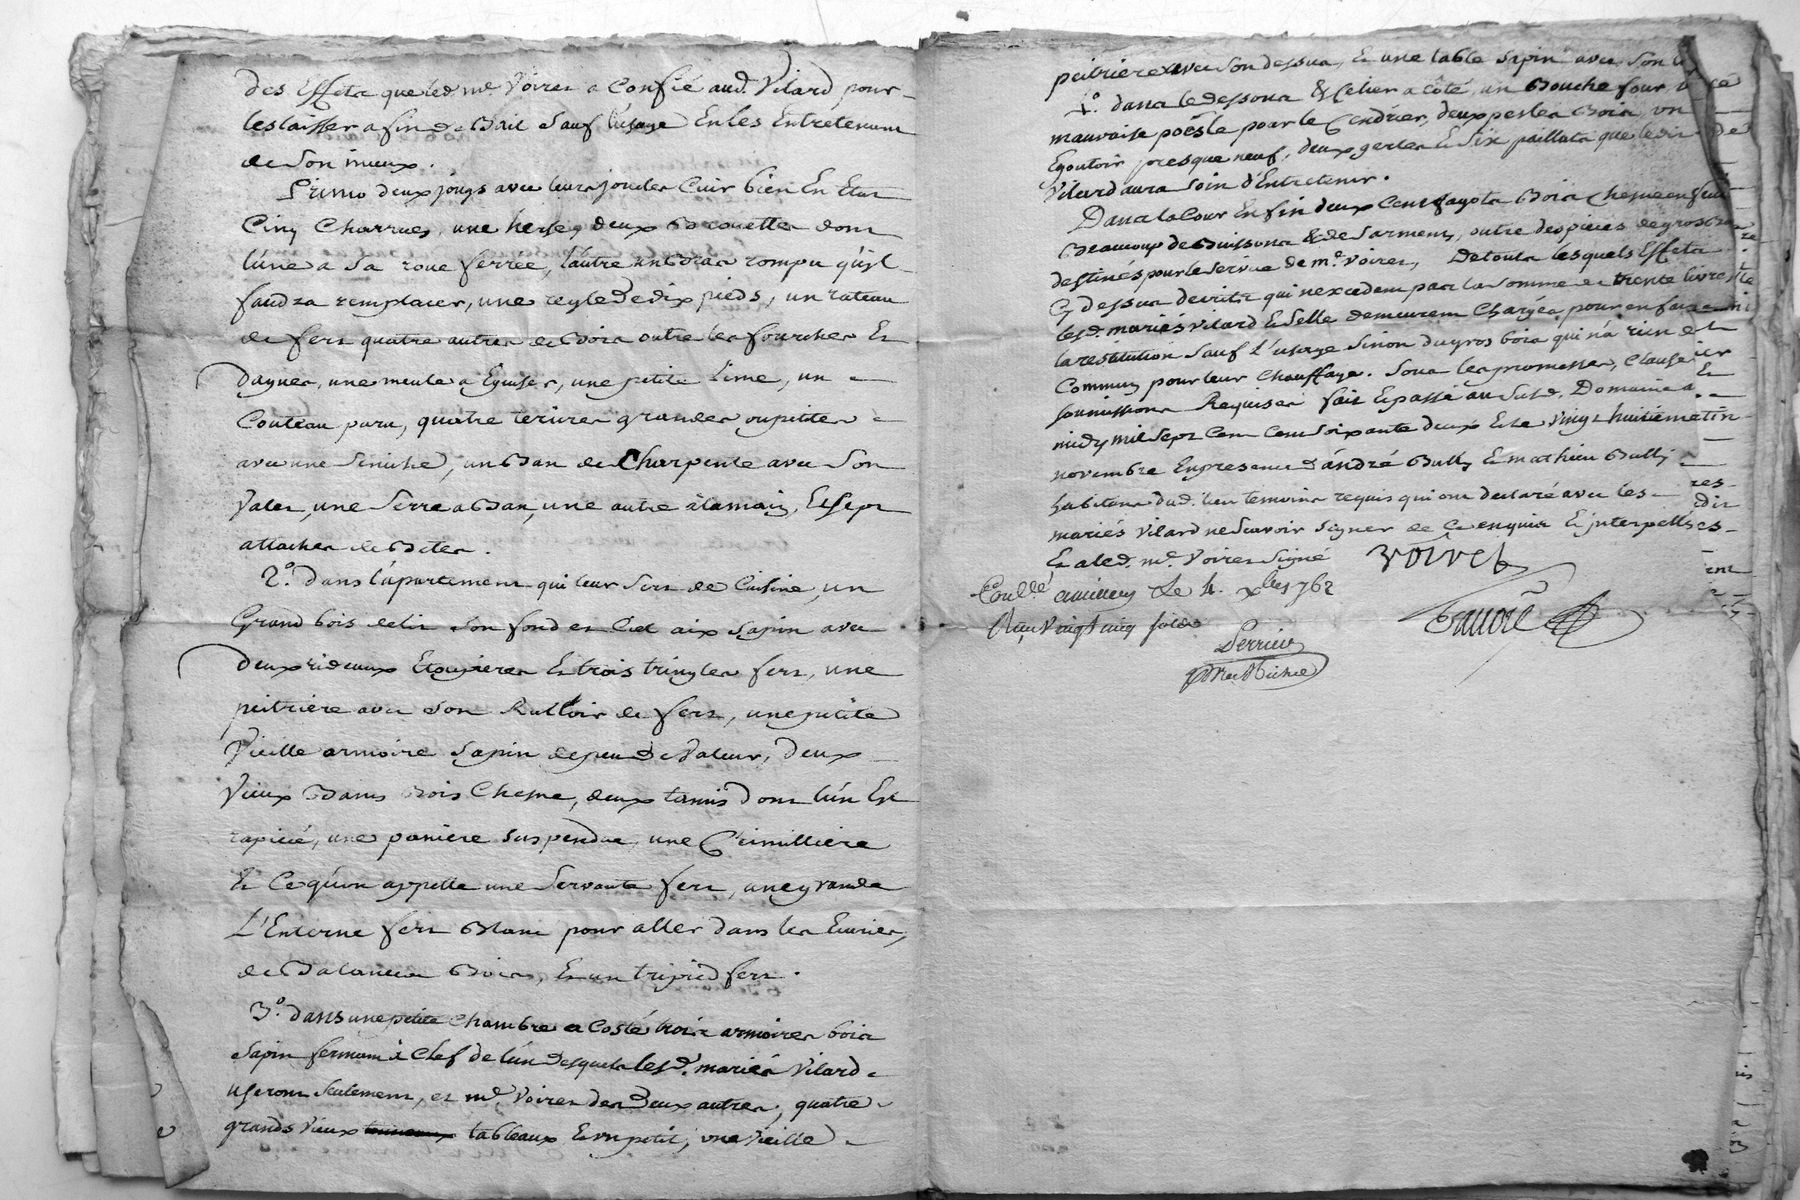 des Effets que led. mr. Voiret a Confié aud. Vilard pour
les laisser a fin de Bail sauf l'usage En les Entretenant
de son mieux.
Primo deux jougs avec leurs joucles Cuir bien En Etat
Cinq Charrues, une herse, deux Brouettes dont
l'une a sa roue ferrée, l'autre un Bras rompu qu'il
faudra remplacer, une regle de dix pieds, un rateau
de fert quatre autres de Bois outre les fourches Et
une meule a Eguiser, une petite Lime, un
Couteau paru, quatre terires grandes ou petites
avec une un Ban de Charpente avec Son
Valet, une Serre a Ban, une autre à la main, Et sept
attaches de Betes.
2.° dans l'apartement qui leur sert de Cuisine, un
Grand bois de lit son fond et Ciel aix Sapin avec
deux rideaux Et trois tringles fert, une
peitriere avec son Rattoir de fert, une petite
Vieille armoire Sapin de peu de Valeur, deux
Vieux Bancs Bois Chesne, deux tamis dont l'un Est
rapicé, une paniere suspendue, une Crimilliere
& Ce qu'on appelle une Servante fert, une grande
L'Enterne fert Blanc pour aller dans les Ecuries,
de Balances Bois, Et un tripied fert.
3.° dans une petite Chambre a Costé trois armoires bois
Sapin fermant à Clef de l'un desquels lesd. mariés Vilard
useront seulement, et mr. Voiret des deux autres, quatre
grands vieux tableaux Et un petit, une vieille
peitriere avec son dessus, & une table sapin avec son
4.° dans le dessous & Celier a côté, un Bouche four,
mauvaise poësle pour le Cendrier, deux pesles Bois, un
Egoutoir presque neuf, deux gerles & six paillats que ledit
Vilard aura soin d'Entretenir.
Dans la Cour Enfin deux Cent fagots Bois Chesne
Beaucoup de Buissons & de Sarments, outre des pieces de gros Bois
destinés pour le service de mr. Voiret, De touts lesquels Effets
Cy dessus decrits qui n'excedent pas la somme de trente livres
lesd. mariés Vilard & Selle demeurent Chargés pour en faire
la restitution Sauf l'usage Sinon du gros bois qui n'a rien de
Commun pour leur Chauffage. Sous les promesses, Clauses
soumissions Requises fait & passé au susd. Domaine
midy mil sept Cent Cent soixante deux & le vingt huitieme
novembre En presence d'André Bully & mathieu Bully
habitans dud. lieu temoins requis qui ont declaré avec les
mariés Vilard ne Scavoir Signer de Ce enquis & interpellés
Et a led. mr. Voiret Signé Voiret
Conllé a Le 4. xbre 1762
Reçu vingt cinq sols
Perrier
Favre